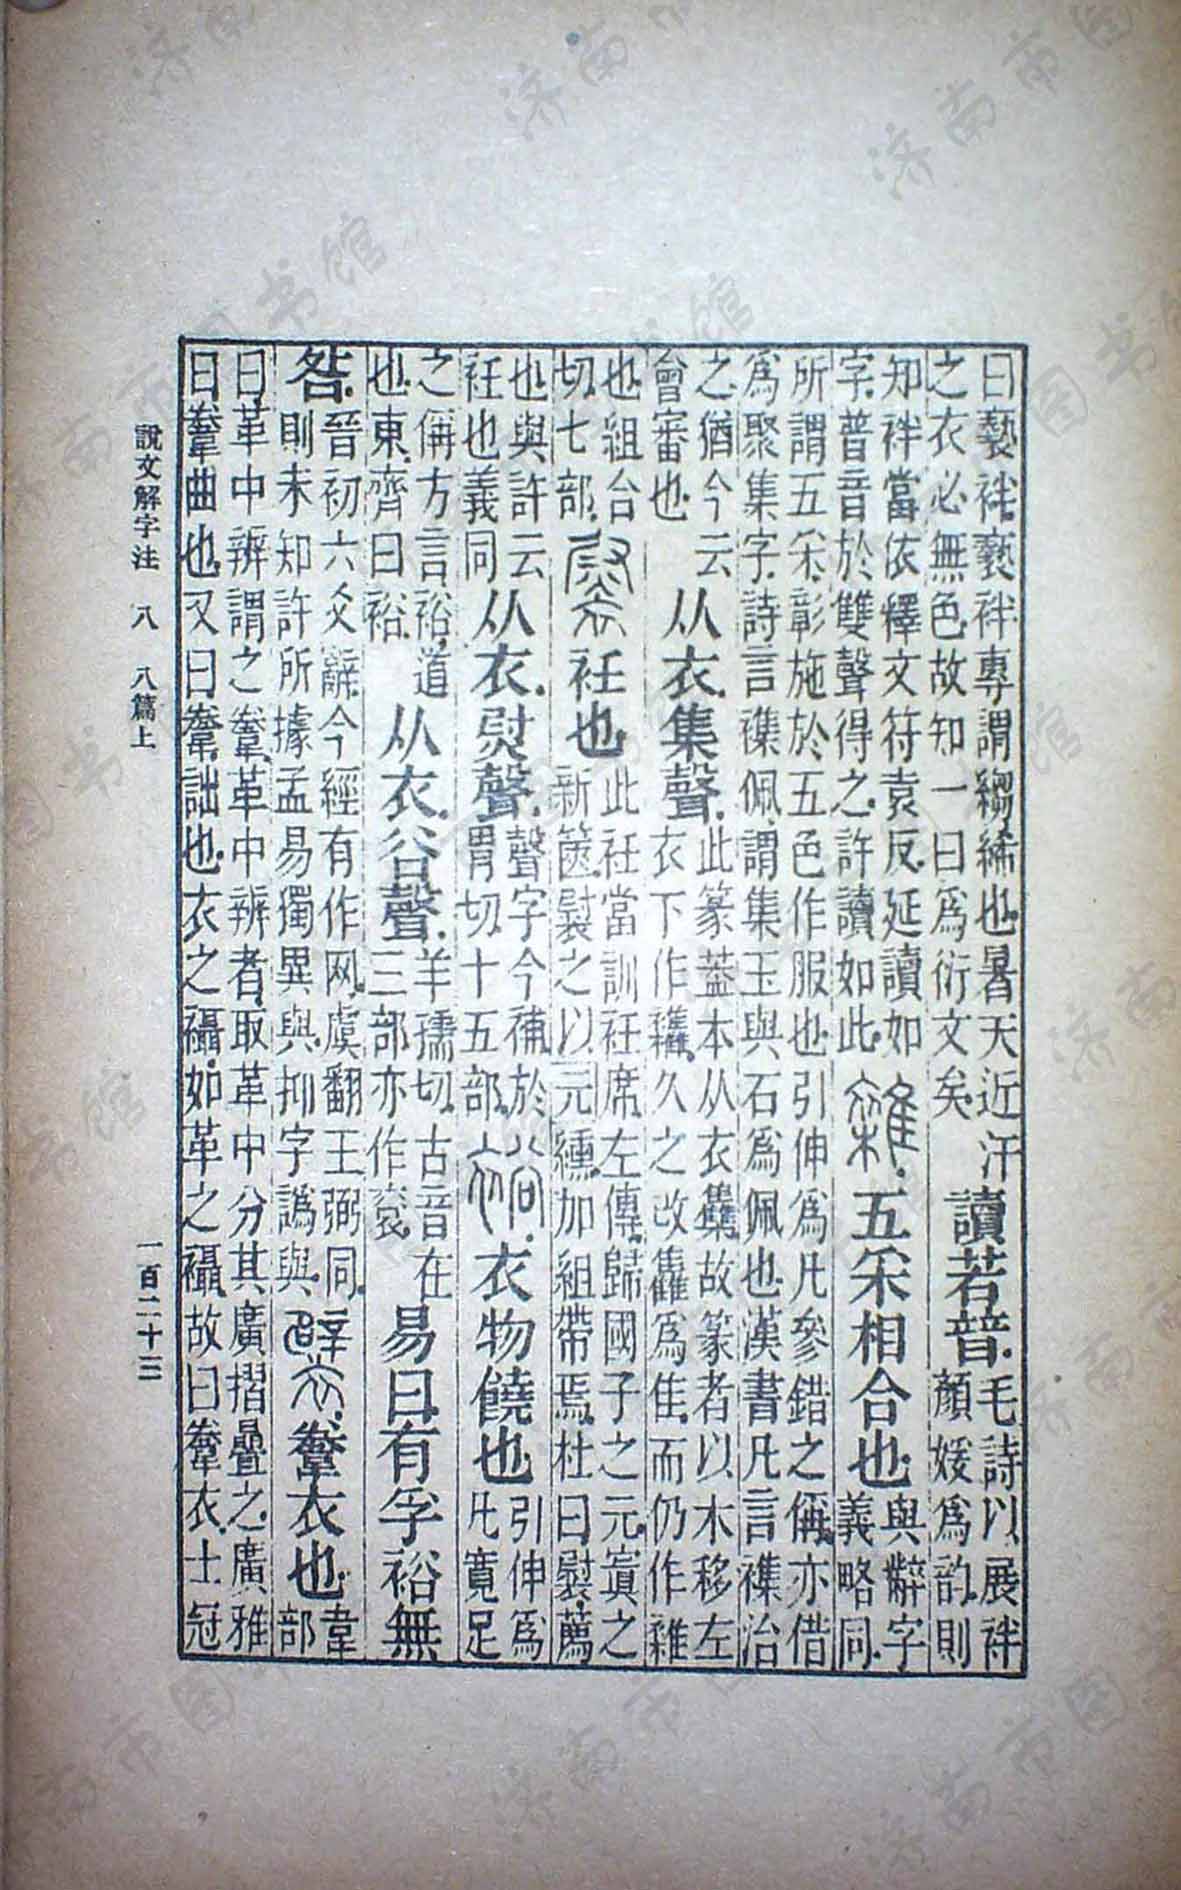 曰褻袢.褻袢專謂縐絺也.暑天近汙
之衣必無色.故知一曰爲衍文矣.
讀若普.
毛詩以展袢
顏媛爲韵.則
知袢當依釋文符袁反.延讀如
字.普音於雙聲得之.許讀如此.
雜.五采相合也.
與辬字
義略同.
所謂五采.彰施於五色作服也.引伸爲凡參錯之偁.亦借
爲聚集字.詩言襍佩.謂集玉與石爲佩也.漢書凡言襍治
之.猶今云
會審也.
从衣.集聲.
此篆葢本从衣雧.故篆者以木移左
衣下作雜.久之改雧爲隹.而仍作雜
也.組合
切.七部.
褽衽也.
此衽當訓衽席.左傳.歸國子之元.寘之
新篋.褽之以元纁.加組帶焉.杜曰.褽.薦
也.與許云
衽也義同.
从衣.㷉聲.
聲字今補.於
胃切.十五部.
裕.衣物饒也.
引伸爲
凡寬足
之偁.方言.裕.道
也.東齊曰裕.
从衣.谷聲.
羊孺切.古音在
三部.亦作袞.
易曰.有孚裕無
咎.
晉初六爻辭.今經有作网.虞翻王弼同.
則未知許所據孟易獨異與.抑字譌與.
襞.韏衣也.
韋
部
曰.革中辨謂之韏.革中辨者.取革中分其廣摺疊之.廣雅
曰.韏.曲也.又曰.韏.詘也.衣之襵.如革之襵.故曰韏衣.士冠
說文解字注 八 八篇上 一百二十三
济南市图书馆